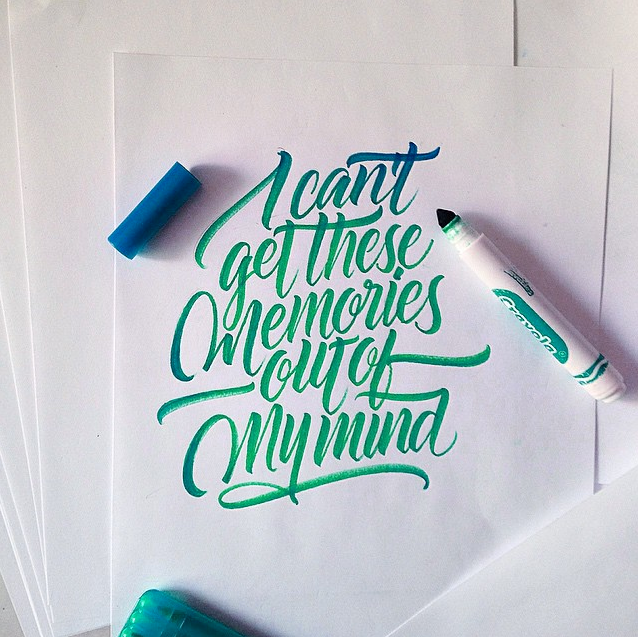 I can't
get these
Memories
out of
My mind
Crayola